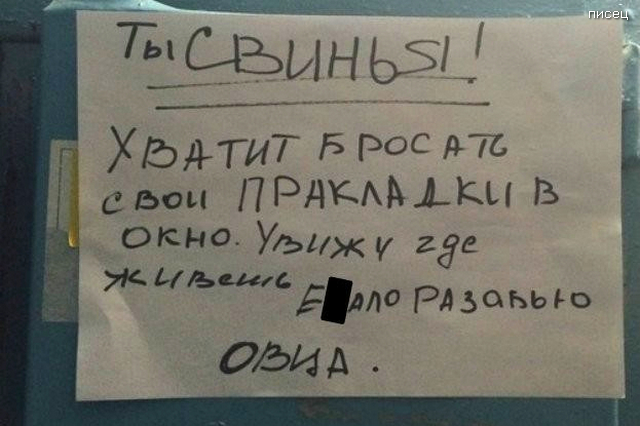 писец
Ты СВИНЬЯ!
ХВАТИТ БРОСАТЬ
СВОИ ПРАКЛАДКИ В
ОКНО. УВИЖУ где
живешь
Е АЛО РАЗАБЬЮ
ОВЦА.